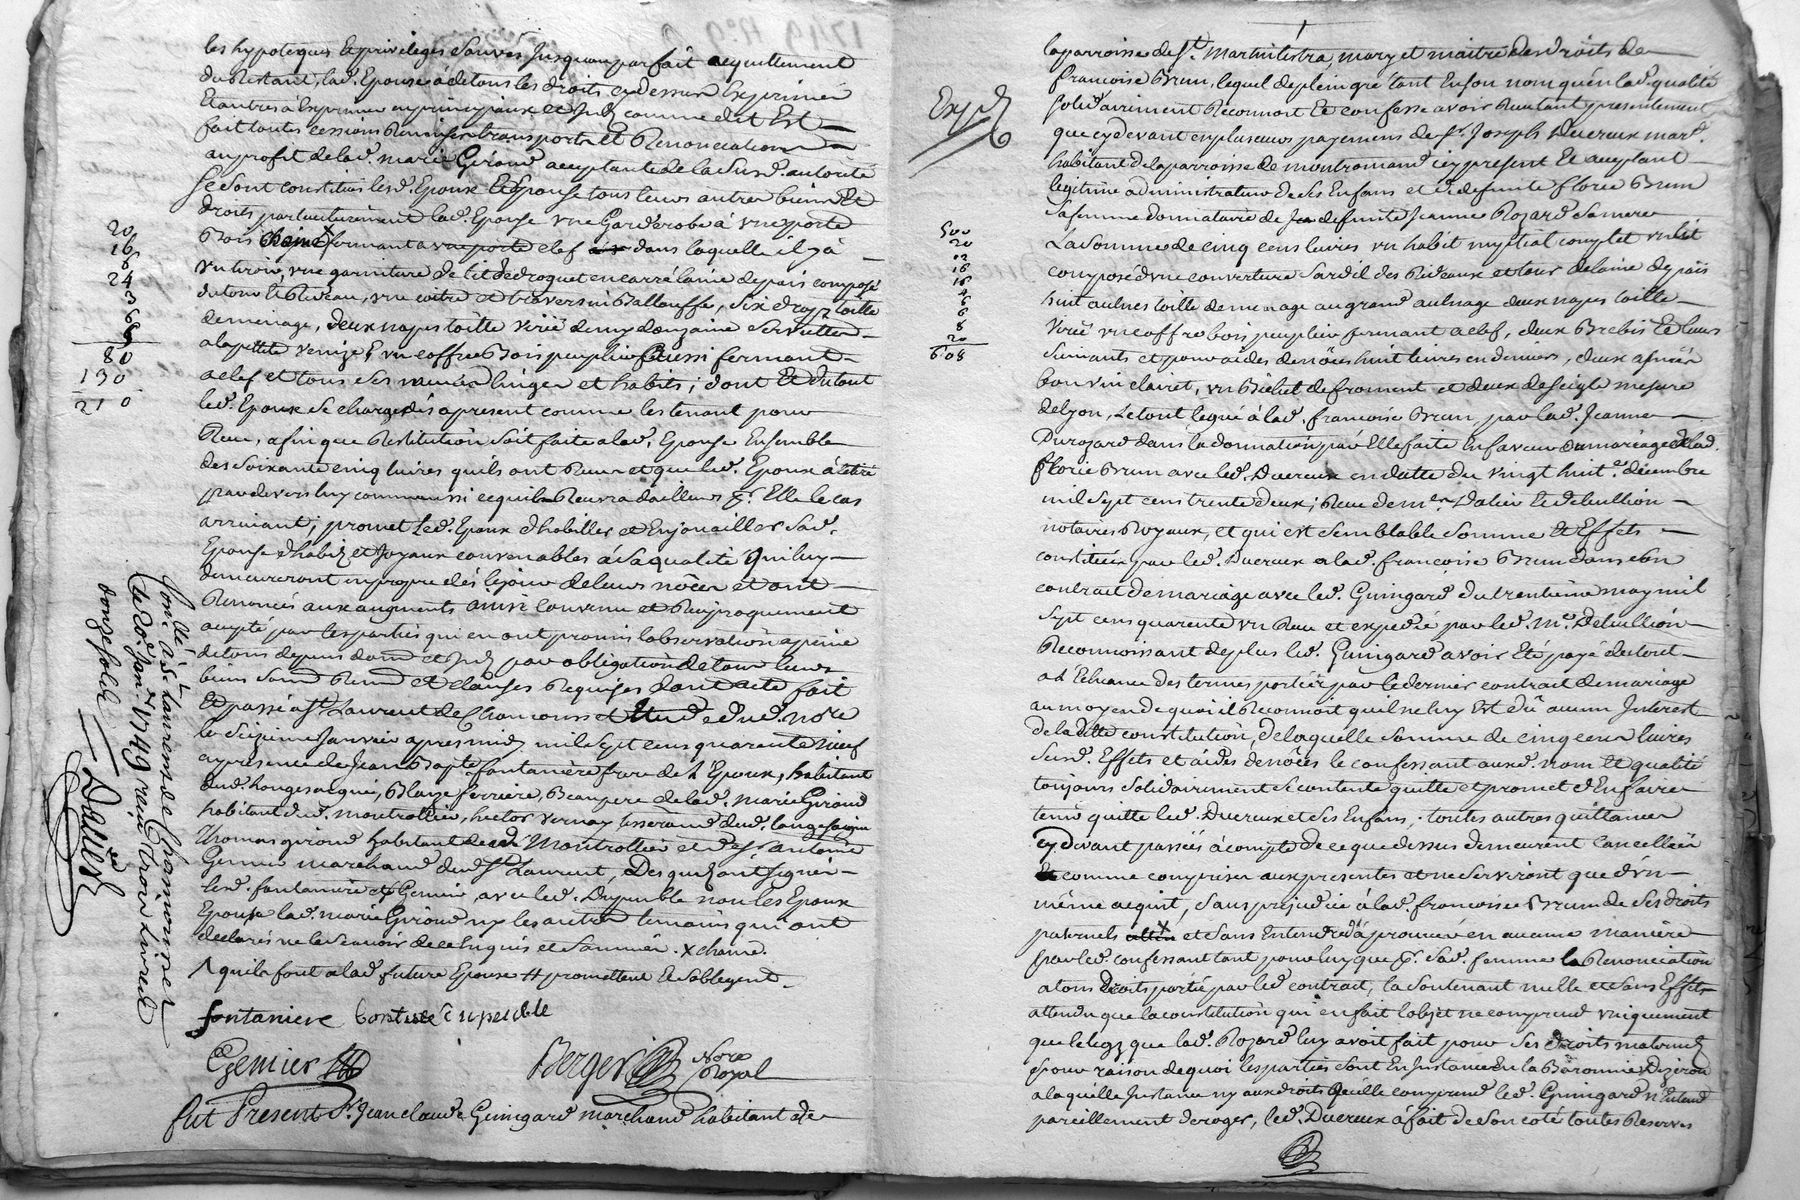 les hypoteques et privileges sauves jusquau parfait acquittement
du Restant, lad. Epouse a de tous les droits cy dessus Exprimés
Et autres à Exprimer en principaux et comme dit Est
fait toutes cessions Remises transports et Renonciations
au profit de lad. marie Giroud acceptante de la susd. autorité
Se sont constitués lesd. Epoux et Epouse tous leurs autres biens et
droits particulierement lad. Epouse une Garderobe à une porte
Bois fermant a clef dans laquelle il y à
une garniture de lit de droguet en carré laine de païs composé
du tour et Rideau, une coitre et traversin Ballouffe, six draps toille
de menage, deux napes toille demy douzaine serviettes
a la petite venize, un coffre Bois peuplier aussi fermant
a clef et tous ses menus linges et habits ; dont et du tout
led. Epoux se charge dés apresent comme les tenant pour
Reçu, afin que Restitution soit faite a lad. Epouse Ensemble
des soixante cinq livres quils ont Reçu et que led. Epoux à
pardevers luy comme aussi ce quil Recevra dailleurs p.r Elle le cas
arrivant ; promet led. Epoux d'habiller et Enjoailler sad.
Epouse d'habits et Joyaux convenables à sa qualité qui luy
demeureront en propre dés le jour de leurs nôces et ont
Renoncés aux augments ainsi convenu et Reciproquement
accepté par les parties qui en ont promis l'observation a peine
de tous depens dom. et par obligation de tous leurs
biens et clauses Requises dont acte fait
Et passé a St. Laurent de Chamousset Etude dud. no.re
le seizieme Janvier apres midy mil sept cens quarante neuf
en presence de Jean Bapte. fontaniere frere de l'Epoux, habitant
dud. longessaigne, Blaize ferriere, Beaupere de lad. marie Giroud
habitant dud. montrottier, hector Vernay tisserand dud. longessaigne
Thomas giroud habitant dud. Montrottier et Sr. antoine
Gemier marchand dud. St. Laurent, Desquels ont signés
lesd. fontaniere et Gemier, avec led. Dupeuble non les Epoux
Epouse lad. marie Giroud ny les autres temoins qui ont
declarés ne le sçavoir de ce Enquis et sommés. x chaine.
quils font a lad. future Epouse # promettent et s'obligent
fontaniere
Gemier
Berger No.re Royal
fut Present Sr. Jean claude Guingard marchand habitant de
20
16
6
24
3
6
80
130
210
Con.lé à St. Laurent de Chamousset
le 20e. Janv. 1749 reçu trois livres
donze sols
Dalier
Expd.
500
20
12
16
16
4
6
6
8
20
608
la parroisse de St. Martin lestra, mary et maitre des droits de
francoise Brun, lequel de plein gré tant en son nom quén lad. qualité
solidairement Reconnoit et confesse avoir Reçu tant presentement
que cy devant en plusieurs payemens de Sr. Joseph Ducreux mard.
habitant de la parroisse de montromand icy present et acceptant
legitime administrateur de ses Enfans et de defunte florie Brun
sa femme donnataire de defunte Jeanne Rozard sa mere
La somme de cinq cens livres un habit nuptial complet un lit
composé d'une couverture Sardis des Rideaux et tour de laine de païs
huit aulnes toille de menage au grand aulnage deux napes toille
une coffre bois peuplier fermant a clef, deux Brebis et leurs
suivants et pour aides de nôces huit livres en deniers, deux asnées
bon vin clairet, un Bichet de froment et deux de seigle mesure
de lyon, le tout legué à lad. francoise Brun par lad. Jeanne
Durozard dans la donnation par Elle faite En faveur du mariage de lad.
florie Brun avec led. Ducreux en datte du vingt huit.e décembre
mil sept cens trente deux ; Reçue de m.es Dalier et debullion
notaires Royaux, et qui est semblable somme et Effets
constitués par led. Ducreux a lad. francoise Brun dans son
contrat de mariage avec led. Guingard du trentieme may mil
sept cens quarente un Reçu et expedié par led. m.e Debullion
Reconnoissant de plus led. Guingard avoir Eté payé du tout
a l'Echeance des termes portés par le dernier contrat de mariage
au moyen de quoi il Reconnoit quil ne luy Est dû aucun Interest
de la ditte constitution, de laquelle somme de cinq cens livres
susd. Effets et aides de nôces le confessant aux d. nom et qualité
toujours solidairement se contente quitte et promet d'En faire
tenir quitte led. Ducreux et ses Enfans, toutes autres quittances
cy devant passées à compte de ce que dessus demeurent cancellées
comme comprises aux presentes et ne serviront que d'un
même acquit, sans prejudice à lad. francoise Brun de ses droits
paternels et sans Entendre approuver en aucune maniere
par led. confessant tant pour luy que p.r sad. femme la Renonciation
a tous Droits portée par led contrat, la soutenant nulle et sans Effets
attendu que la constitution qui en fait l'objet ne comprend uniquement
que le legs que lad. Rozard luy avoit fait pour ses droits maternels
pour raison de quoi les parties sont En Instance En la Baronnie
a laquelle Instance ny aux droits quélle comprend led. Guingard n'Entend
pareillement deroger, led. Ducreux à fait de son coté toutes Reserves